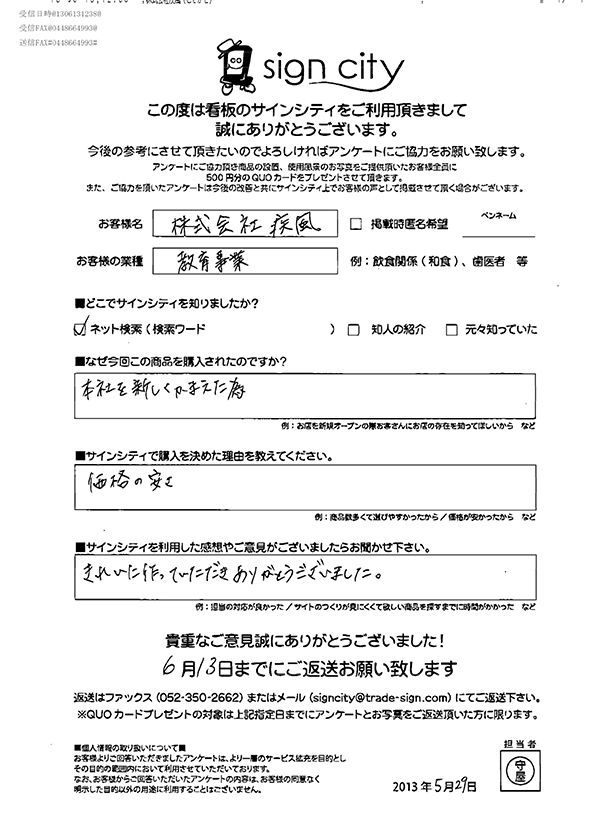 受信日時@1306131238@
受信FAX@0448664993@
送信FAX#0448664993#
sign city
この度は看板のサインシティをご利用頂きまして
誠にありがとうございます。
今後の参考にさせて頂きたいのでよろしければアンケートにご協力をお願い致します。
アンケートにご協力頂き商品の設置、使用風景のお写真をご提供頂いたお客様全員に
500円分のQUOカードをプレゼントさせて頂きます。
また、ご協力を頂いたアンケートは今後の改善と共にサインシティ上でお客様の声として掲載させて頂く場合がございます。
お客様名 株式会社疾風 □ 掲載時匿名希望 ペンネーム
お客様の業種 教育事業 例：飲食関係（和食）、歯医者 等
■どこでサインシティを知りましたか？
☑ ネット検索（検索ワード ） □ 知人の紹介 □ 元々知っていた
■なぜ今回この商品を購入されたのですか？
本社を新しくかまえた為
例：お店を新規オープンの際お客さんにお店の存在を知ってほしいから など
■サインシティで購入を決めた理由を教えてください。
価格の安さ
例：商品数多くて選びやすかったから／価格が安かったから など
■サインシティを利用した感想やご意見がございましたらお聞かせ下さい。
きれいに作っていただきありがとうございました。
例：担当の対応が良かった／サイトのつくりが見にくくて欲しい商品を探すまでに時間がかかった など
貴重なご意見誠にありがとうございました！
6月13日までにご返送お願い致します
返送はファックス（052-350-2662）またはメール（signcity@trade-sign.com）にてご返送下さい。
※QUOカードプレゼントの対象は上記指定日までにアンケートとお写真をご返送頂いた方に限ります。
■個人情報の取り扱いについて■
お客様よりご回答いただきましたアンケートは、より一層のサービス拡充を目的とし
その目的の範囲内において利用させていただいております。
なお、お客様からご回答いただいたアンケートの内容は、お客様の同意なく
明示した目的以外の用途に利用することはございません。
担当者
守屋
2013年5月29日